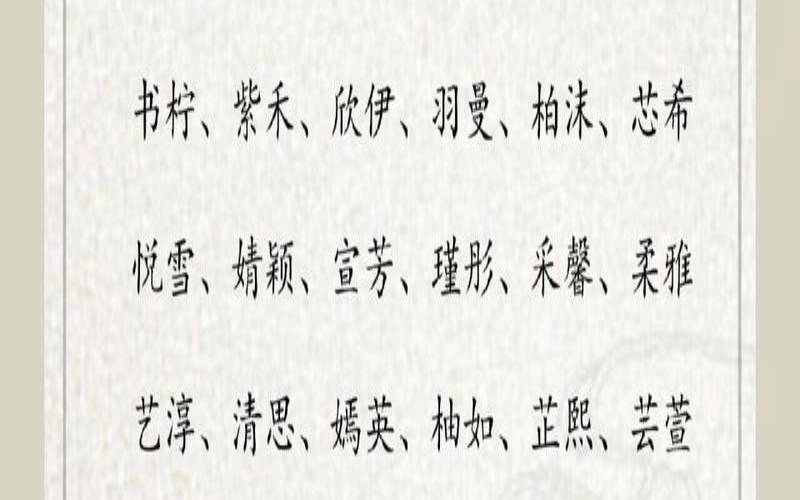 书柠、紫禾、欣伊、羽曼、柏沫、芯希
悦雪、婧颖、宣芳、瑾彤、采馨、柔雅
艺淳、清思、嫣英、柚如、芷熙、芸萱